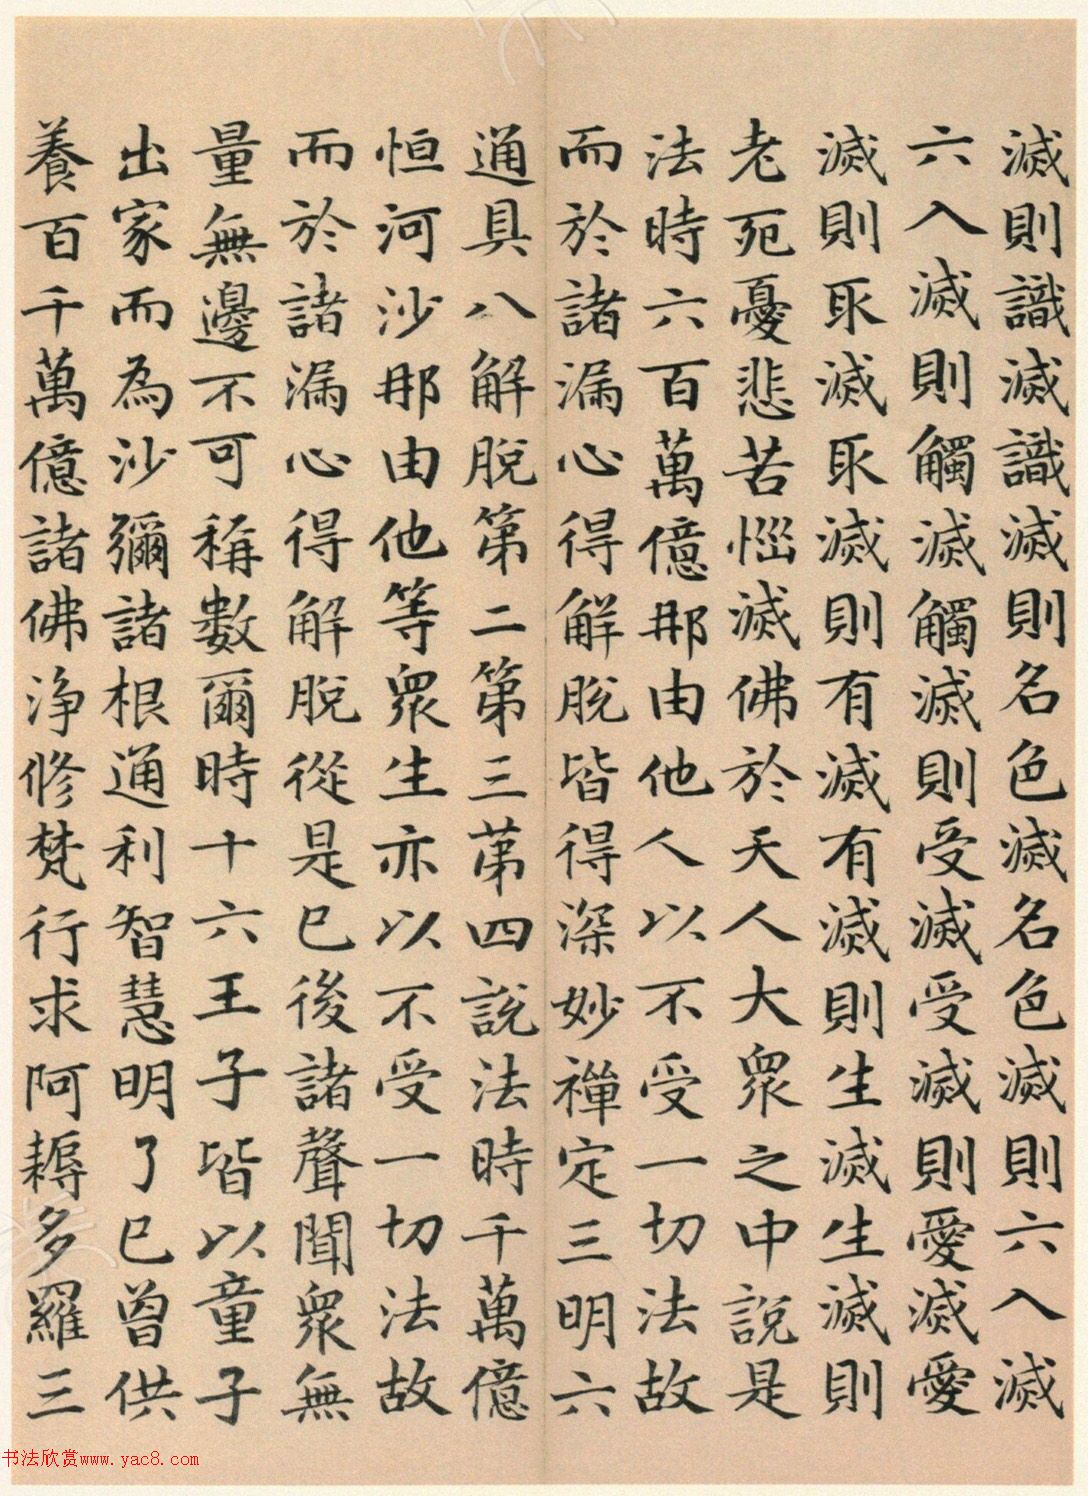 滅則識滅識滅則名色滅名色滅則六入滅
六入滅則觸滅觸滅則受滅受滅則愛滅愛
滅則取滅取滅則有滅有滅則生滅生滅則
老死憂悲苦惱滅佛於天人大眾之中說是
法時六百萬億那由他人以不受一切法故
而於諸漏心得解脫皆得深妙禪定三明六
通具八解脫第二第三第四說法時千萬億
恒河沙那由他等眾生亦以不受一切法故
而於諸漏心得解脫從是已後諸聲聞眾無
量無邊不可稱數爾時十六王子皆以童子
出家而為沙彌諸根通利智慧明了已曾供
養百千萬億諸佛淨修梵行求阿耨多羅三
书法欣赏www.yac8.com